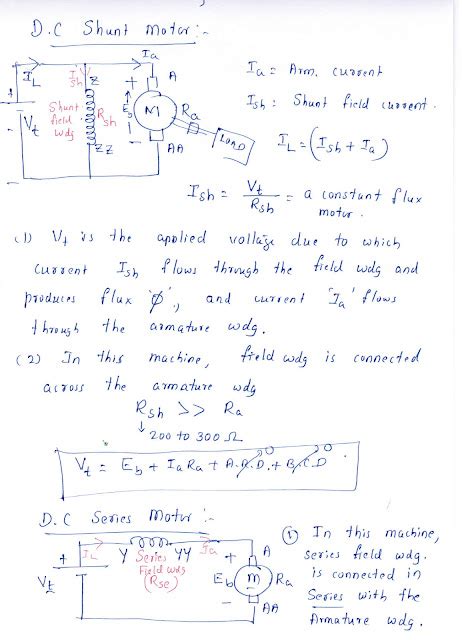 D.C Shunt Motor :-
Ia
IL
Ish
Z
+
A
Ia = Arm. current
Shunt
field
wdg
Rsh
Eb
M
Ra
Ish : Shunt field current.
Vt
LOAD
IL = (Ish + Ia)
ZZ
-
AA
Ish = Vt / Rsh = a constant flux
motor.
(1) Vt is the applied voltage due to which
current Ish flows through the field wdg and
produces flux 'φ', and current 'Ia' flows
through the armature wdg.
(2) In this machine, field wdg is connected
across the armature wdg
Rsh >> Ra
↓ 200 to 300 Ω
Vt = Eb + IaRa + A.R.D. + B.C.D
0 0
D.C Series Motor :-
+ IL Y Series YY Ia + A
Field wdg
(Rse)
Vt
Eb M Ra
-
AA
① In this machine,
series field wdg.
is connected in
Series with the
Armature wdg.